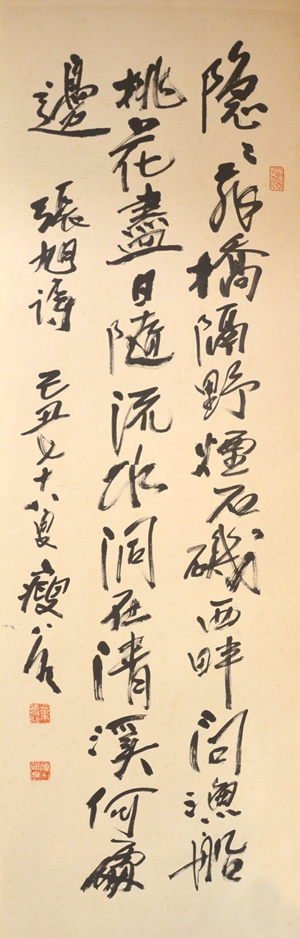 隐〻飛橋隔野煙石磯西畔問漁船
桃花盡日隨流水洞在清溪何處
邊 張旭詩 己丑七十八叟瘦